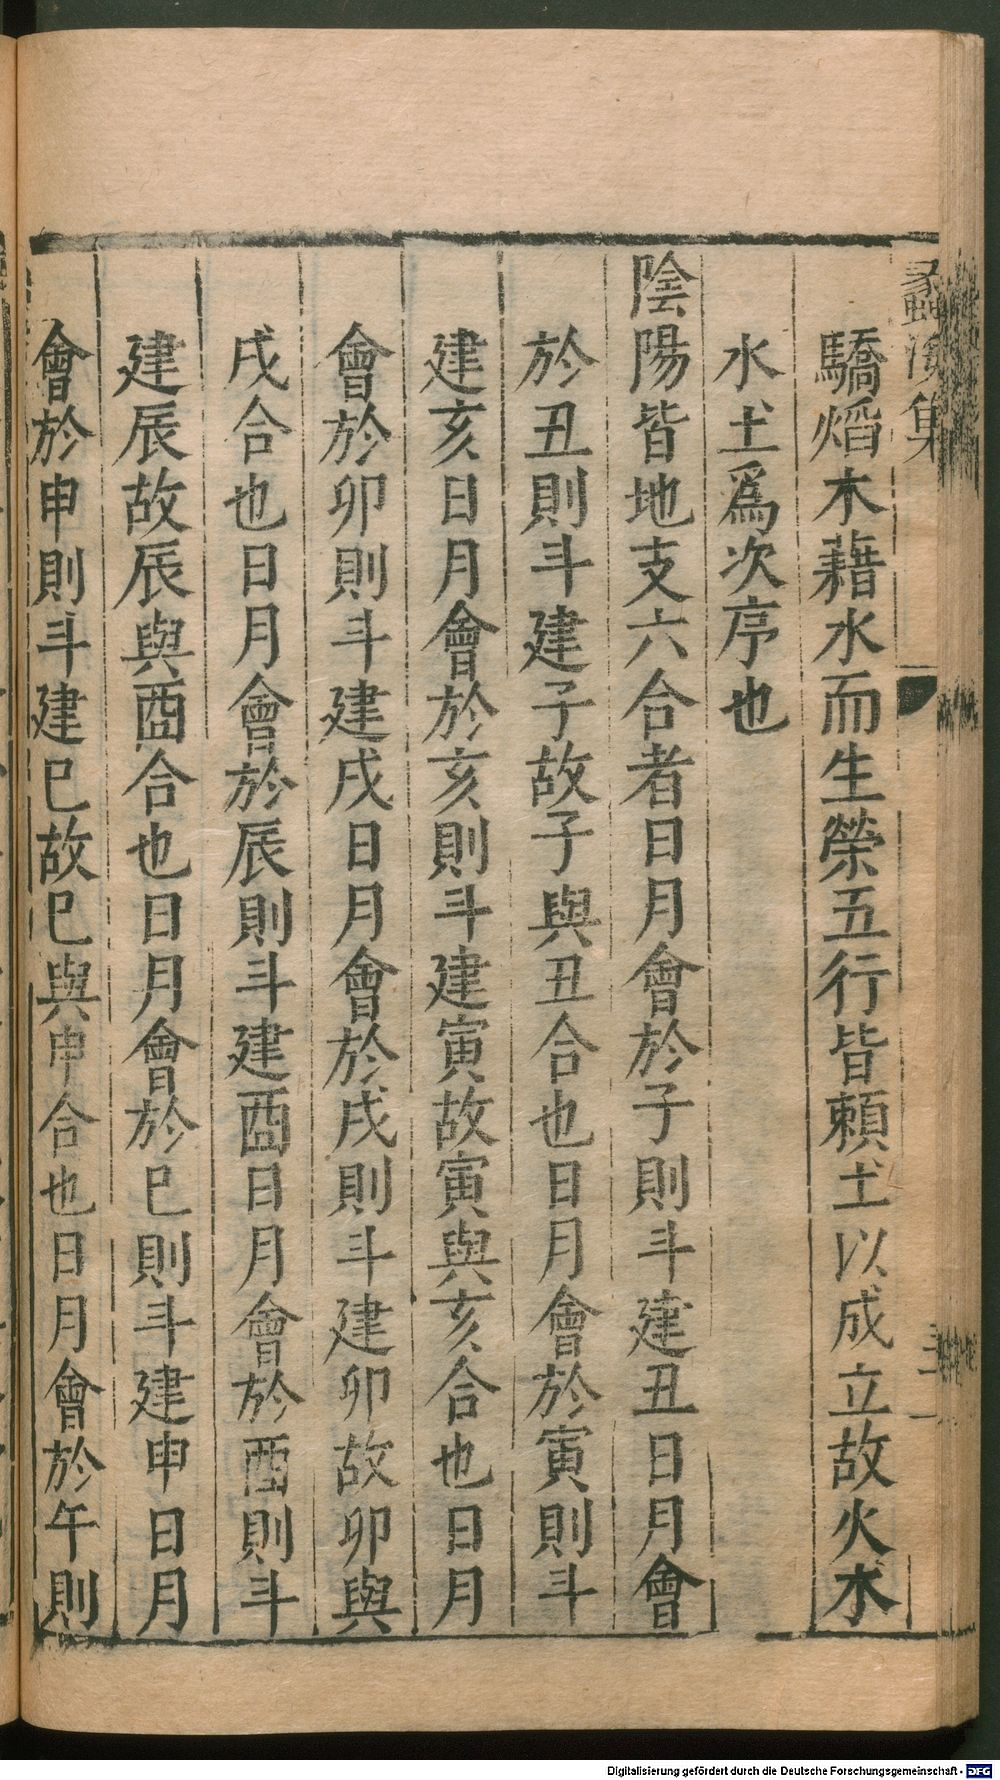 蠡海集
驕熖木藉水而生榮五行皆頼土以成立故火木
水土爲次序也
陰陽皆地支六合者日月會於子則斗建丑日月會
於丑則斗建子故子與丑合也日月會於寅則斗
建亥日月會於亥則斗建寅故寅與亥合也日月
會於卯則斗建戌日月會於戌則斗建卯故卯與
戌合也日月會於辰則斗建酉日月會於酉則斗
建辰故辰與酉合也日月會於巳則斗建申日月
會於申則斗建巳故巳與申合也日月會於午則
Digitalisierung gefördert durch die Deutsche Forschungsgemeinschaft - DFG